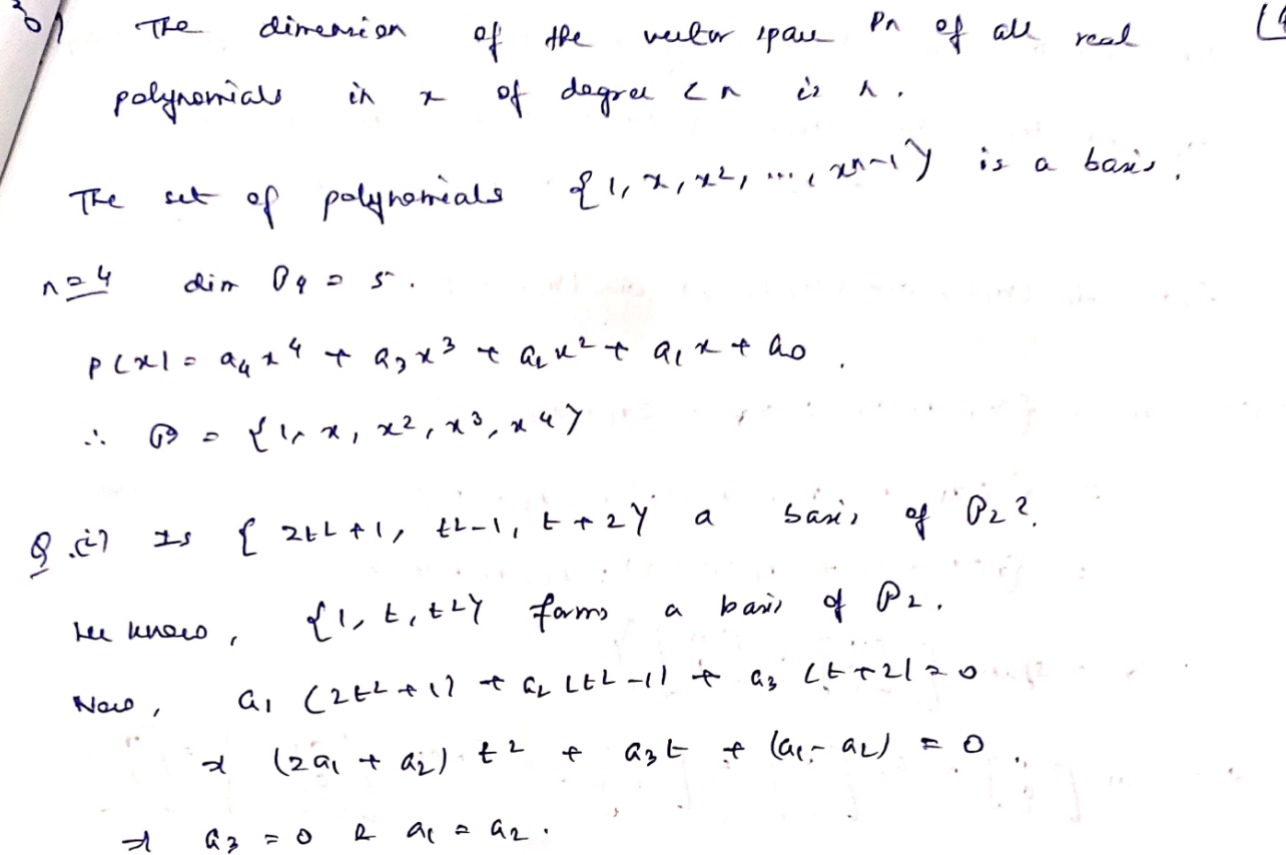 The dimension of the vector space Pn of all real
polynomials in x of degree < n is n.
The set of polynomials {1, x, x², ..., xⁿ⁻¹} is a basis.
n=4 dim P4 = 5.
P(x) = a₄x⁴ + a₃x³ + a₂x² + a₁x + a₀.
∴ P = {1, x, x², x³, x⁴}
Q.(i) Is {2t²+1, t²-1, t+2} a basis of P₂?
We know, {1, t, t²} forms a basis of P₂.
Now, a₁(2t²+1) + a₂(t²-1) + a₃(t+2) = 0
⇒ (2a₁ + a₂) t² + a₃t + (a₁ - a₂) = 0.
⇒ a₃ = 0 & a₁ = a₂.